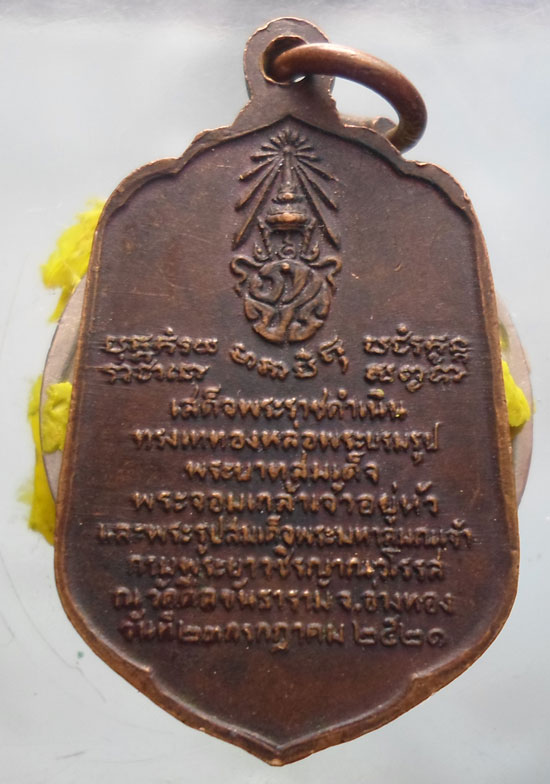 เสด็จพระราชดำเนิน
ทรงเททองหล่อพระบรมรูป
พระบาทสมเด็จ
พระจอมเกล้าเจ้าอยู่หัว
และพระรูปสมเด็จพระมหาสมณเจ้า
กรมพระยาวชิรญาณวโรรส
ณ.วัดศีลขันธาราม จ.อ่างทอง
วันที่ ๒๓ กรกฎาคม ๒๕๒๑